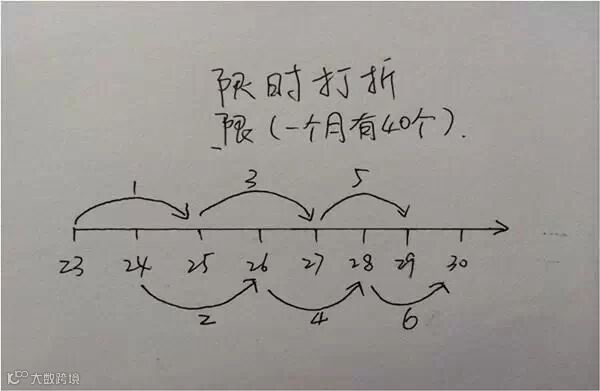 限时打折
限(一个月有40个).
1 3 5
23 24 25 26 27 28 29 30 .....
2 4 6
大数跨境